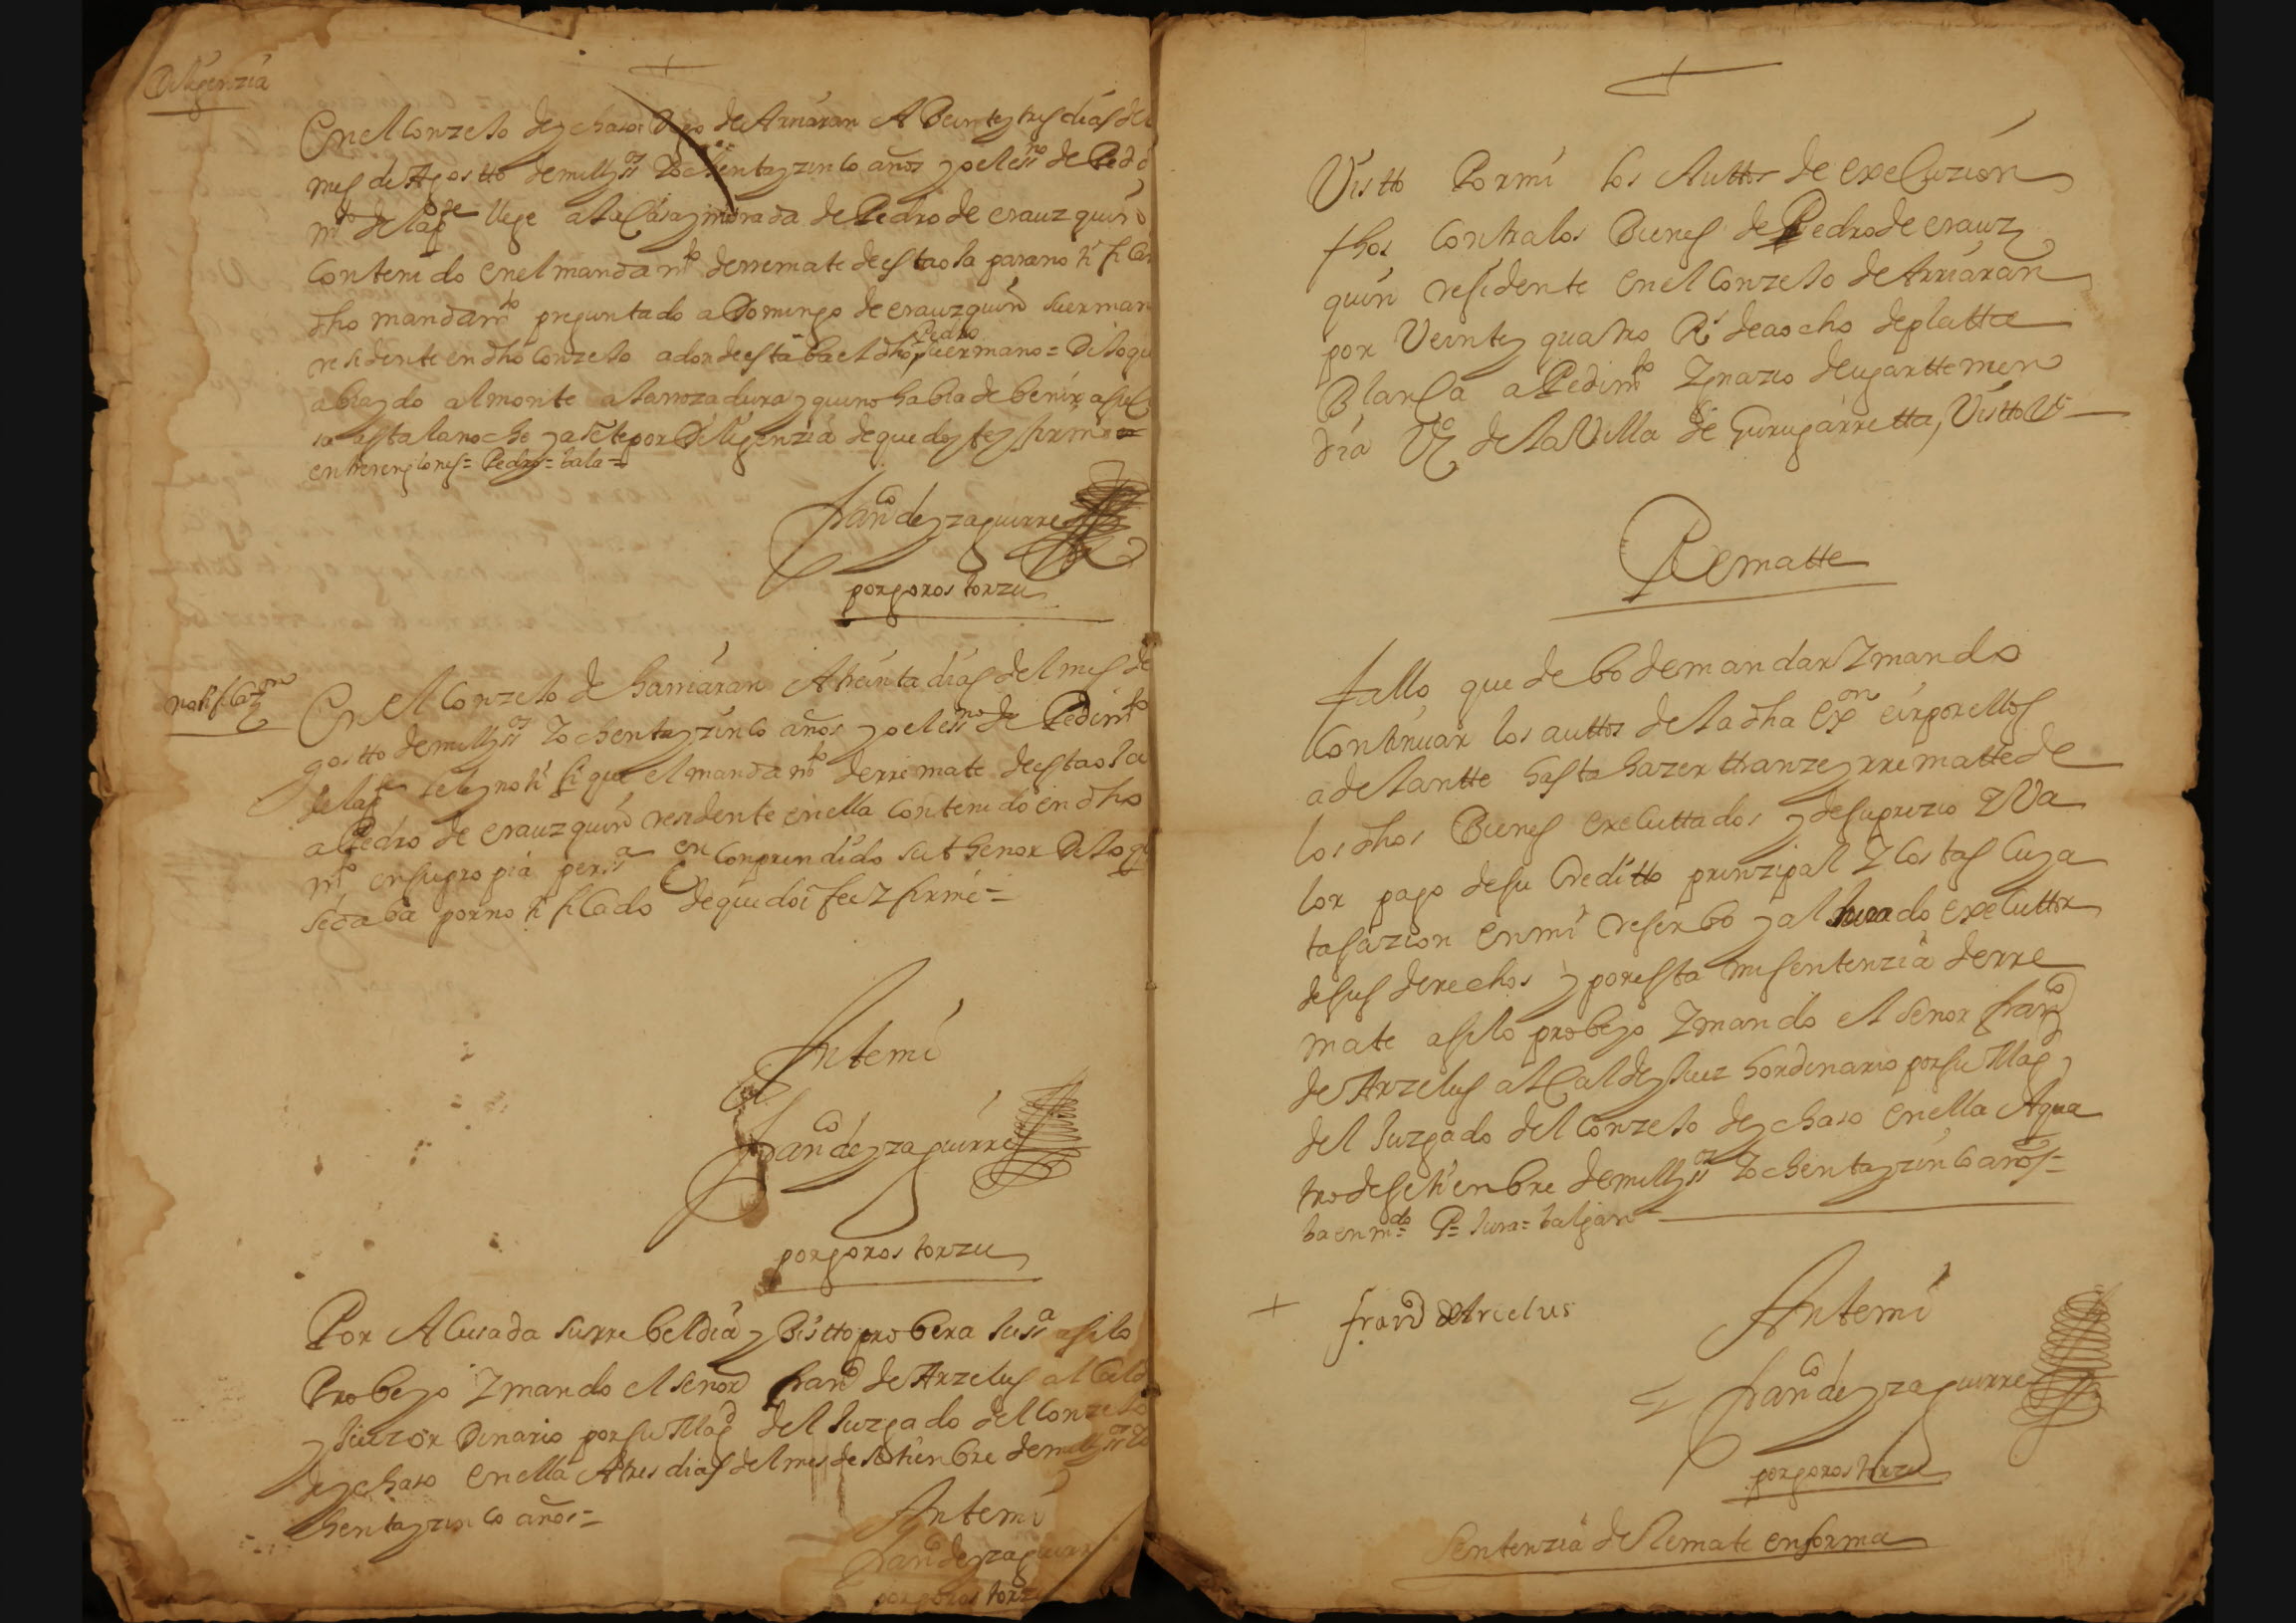 Dilijenzia
En el Conzejo de ychaso i Vgo de Arriaran A Beinte y tres dias del
mes de Agostto de mill y ssos Zochenta y zinco años yo el essno de Pedi
mto de la pte llege a la Casa y morada de Pedro de erauzquin
Contenido en el mandamto derremate de esta oja para notificar
dho mandamto preguntado a Domingo de erauzquin su erman
Pedro
residente en dho Conzejo adonde estaba el dho su ermano = Dijo qu
abia ydo al monte a la rrozadura y que no habia de benir a su Ca
sa asta la noche y asente por Dilijenzia de que doy fe y firme =
entrerenglones = Pedro = bala =
Franco de yzaguirre
por goros torzu
notificazon
En el Conzejo de harriaran A treinta dias del mes de
gostto de mill y ssos Zochenta y zinco años yo el essno de Pedimto
de la pte lei y notifique el mandamto derremate de esta oja
a Pedro de erauzquin residente en ella Contenido en dho
mto en su propia perssa en Conprendido su thenor Dijo q
se daba por notificado de que doi fee Z firme =
Antemi
Franco de yzaguirre
por goros torzu
Por Acusada su rrebeldia y Bistto probera Jussa asi lo
Probeyo Z mando el senor Franco de Arzelus alCald
y Juez or Dinario por su Magd del Juzgado del Conzejo
de ychaso en ella A tres dias del mes de Setienbre de mill y ssos Zo
chenta y zinco años =
Antemi
Franco de yzaguirre
por goros torzu
Vistto Por mi los Auttos de execuzion
fhos Contra los Bienes de Pedro de erauz
quin residente en el Conzejo de Arriaran
por Veinte y quatro Rs de a ocho de platta
BlanCa a Pedimto Ygnazio de ugarttemen
dia Vo de la Villa de Gurugarretta, Vistto Va
Rematte
Fallo que debo de mandar Z mando
Continuar los auttos de la dha exon e ir por ellos
adelantte hasta hazer thranze y rrematte de
los dhos Bienes executtados y de su prezio Z Va
lor pago de su Creditto prinzipal Z Costas Cuya
tasazion en mi reserbo y al Jurado executtor
de sus derechos y por esta mi sentenzia derre
mate asi lo probeyo Z mando el Senor Franco
de Arzelus alCalde y Juez hordinario por su Magd
del Juzgado del Conzejo de ychaso en ella A qua
tro de setienbre de mill y ssos Zochenta y zinco años =
ba enmdo P = Jura = balgan
Franco de Arcelus
Antemi
Franco de yzaguirre
por goros torzu
Sentenzia de Remate en forma